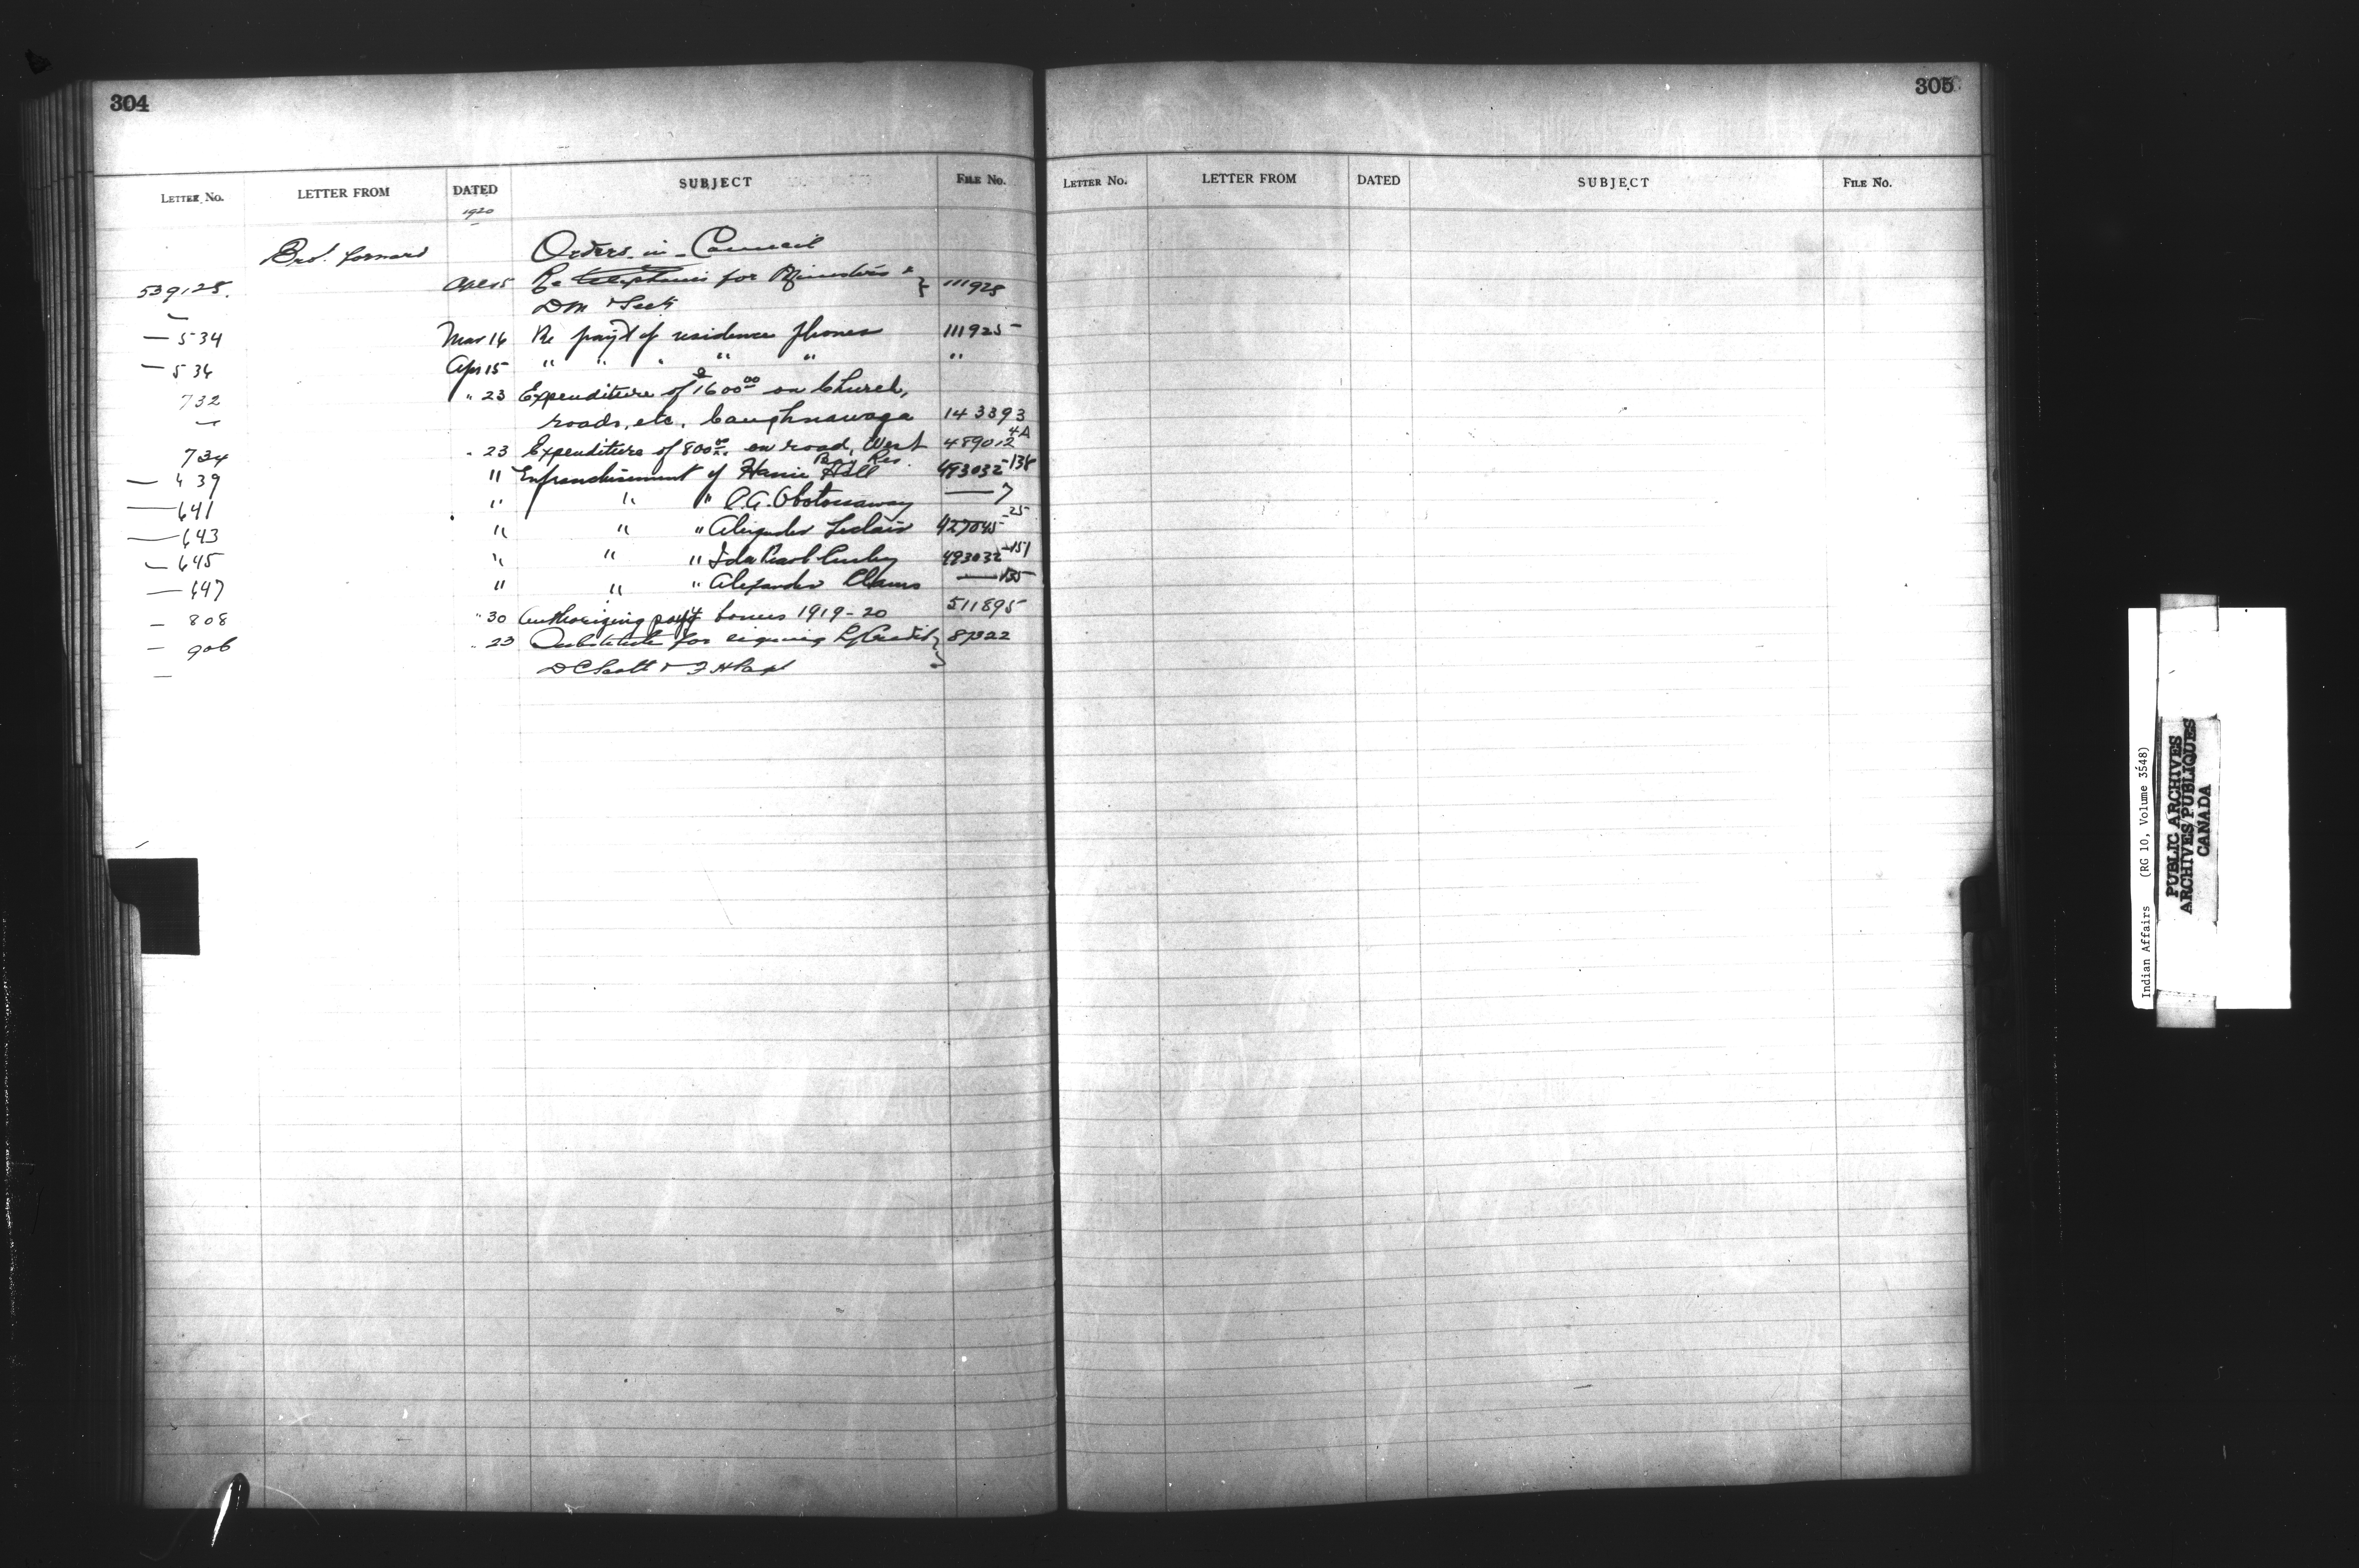 304
LETTER NO. LETTER FROM DATED SUBJECT FILE NO.
1920
Bro't. forward Orders-in-Council
539125. Apl 15 Re Telephones for Ministers & } 111925
DM & Secty
— 534 Mar 16 Re pay't of residence phones 111925
— 536 Apr 15 " " " " " "
732 " 23 Expenditure of $1600 00 on Church,
roads, etc. Caughnawaga 143393
734 " 23 Expenditure of 800 00 on road, West 489012 4A
Bay Res.
— 639 " Enfranchisement of Hall 493032-138
— 641 " " " — 7
— 643 " " " Alexander Leclair 427045-25
— 645 " " " Ida Pearl 493032-151
— 647 " " " Alexander — 135
— 808 " 30 Authorizing pay't bonus 1919-20 511895
— 906 " 23 Substitute for signing L/Credit } 87322
D C Scott & F H
305
LETTER NO. LETTER FROM DATED SUBJECT FILE NO.
Indian Affairs (RG 10, Volume 3548)
PUBLIC ARCHIVES
ARCHIVES PUBLIQUES
CANADA